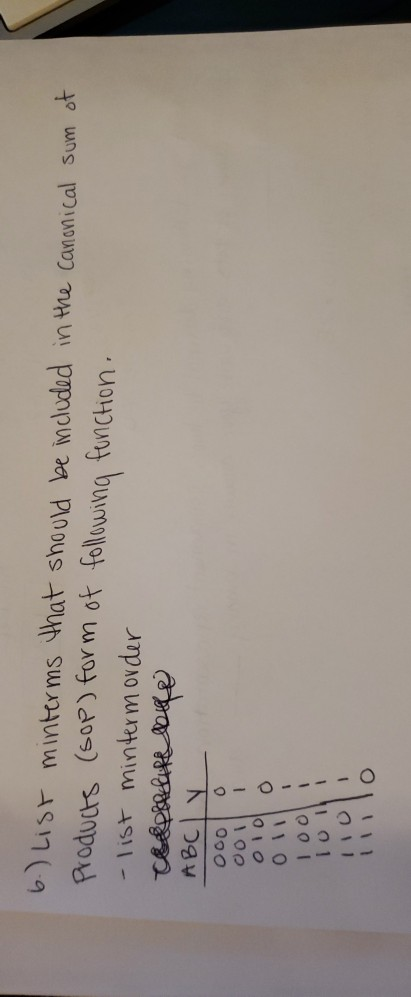 6.) List minterms that should be included in the canonical sum of
Products (SOP) form of following function.
- list minterm order
ABC | Y
000 0
001 1
010 0
011 1
100 1
101 1
110 1
111 0